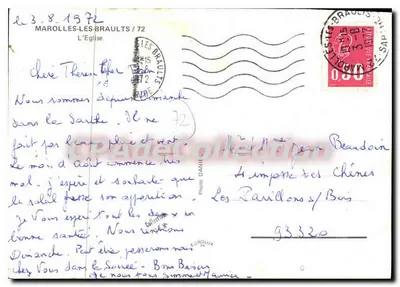 le 3.8.1972
MAROLLES-LES-BRAULTS / 72
L'Eglise
MAROLLES-LES-BRAULTS
0,80
Nous sommes depuis Dimanche
dans la Sarthe. Il ne
fait pas
72
le mois d'août commence
mal. J'espère et souhaite que
le soleil fasse son apparition.
Je Vous espère tous les deux en
bonne santé. Nous rentrons
Dimanche. Peut être passerons nous
chez Vous dans la Soirée. Bons Baisers
de nous tous
Jean Beaudoin
4 impasse des Chênes
Les Pavillons s/Bois
93320